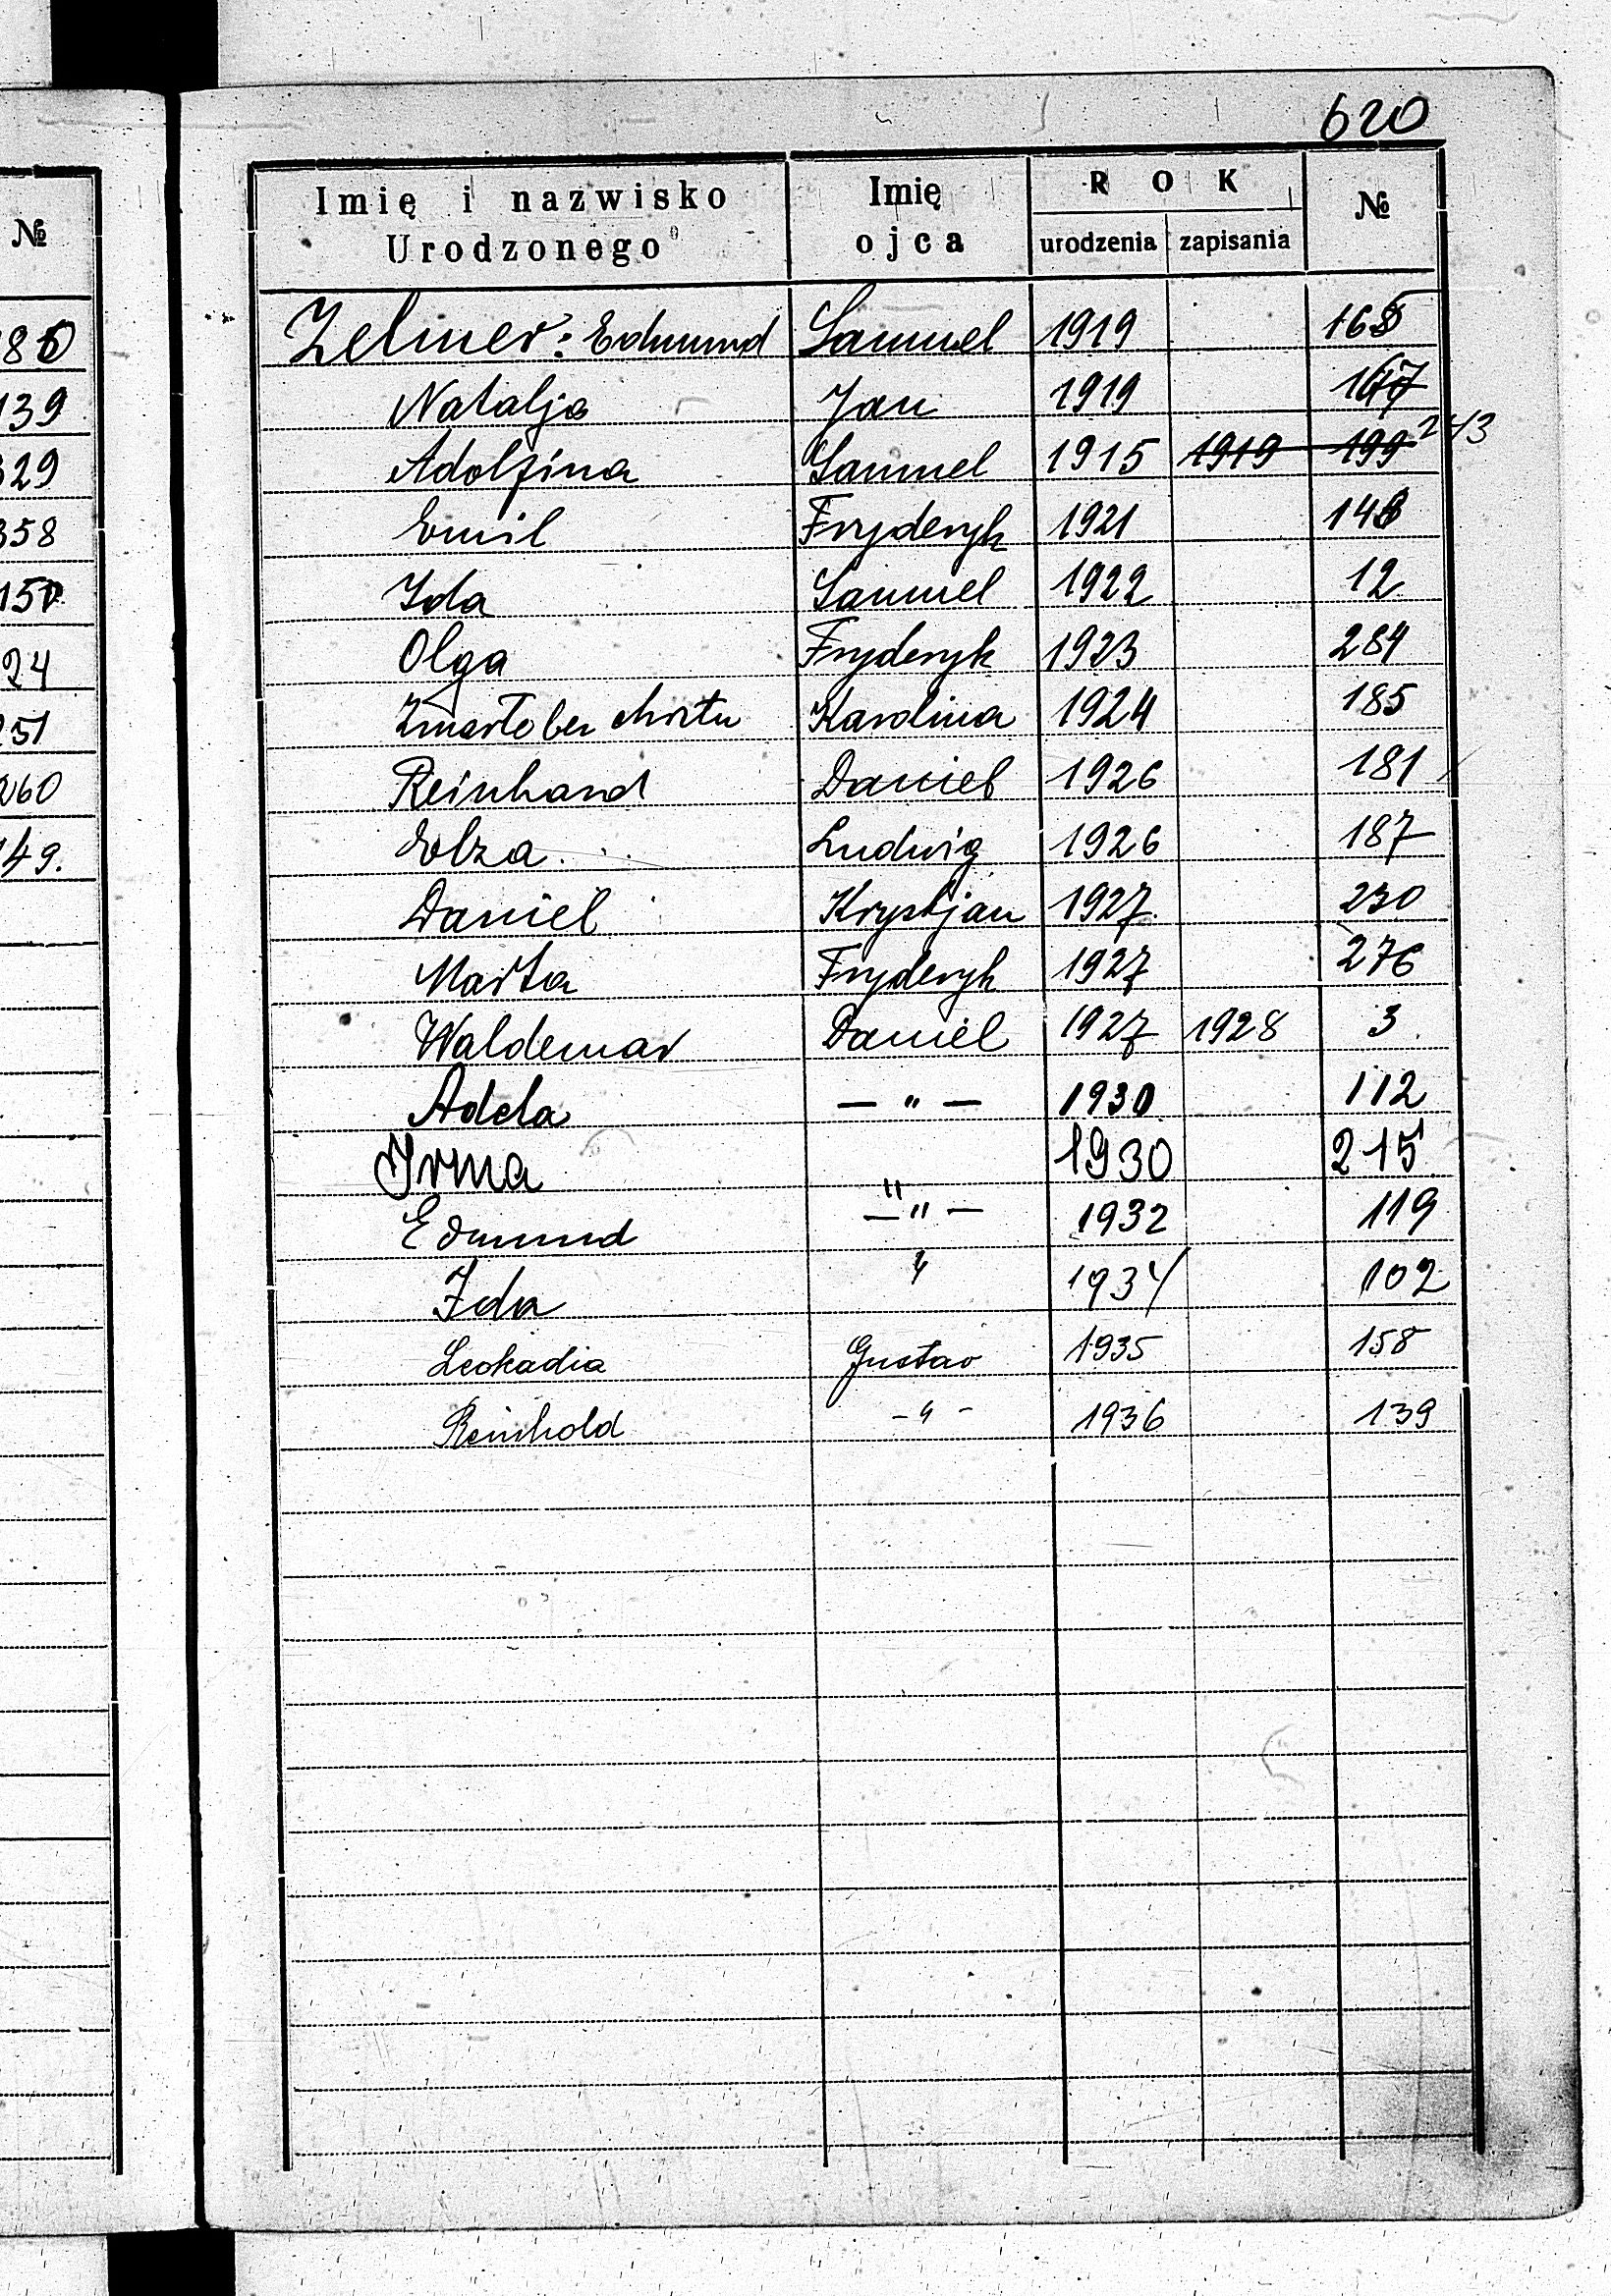 620
Imię i nazwisko Urodzonego Imię ojca ROK urodzenia zapisania №
№
Zelmer: Edmund Samuel 1919 165
Natalja Jan 1919 167
Adolfina Samuel 1915 1919 199 243
Emil Fryderyk 1921 148
Ida Samuel 1922 12
Olga Fryderyk 1923 284
Zmarło bez chrztu Karolina 1924 185
Reinhard Daniel 1926 181
Elza Ludwig 1926 187
Daniel Krystjan 1927 230
Marta Fryderyk 1927 276
Waldemar Daniel 1927 1928 3
Adela — " — 1930 112
Irma " 1930 215
Edmund — " — 1932 119
Ida " 1934 102
Leokadia Gustav 1935 158
Reinhold - " - 1936 139
39
29
358
150
24
251
260
49.